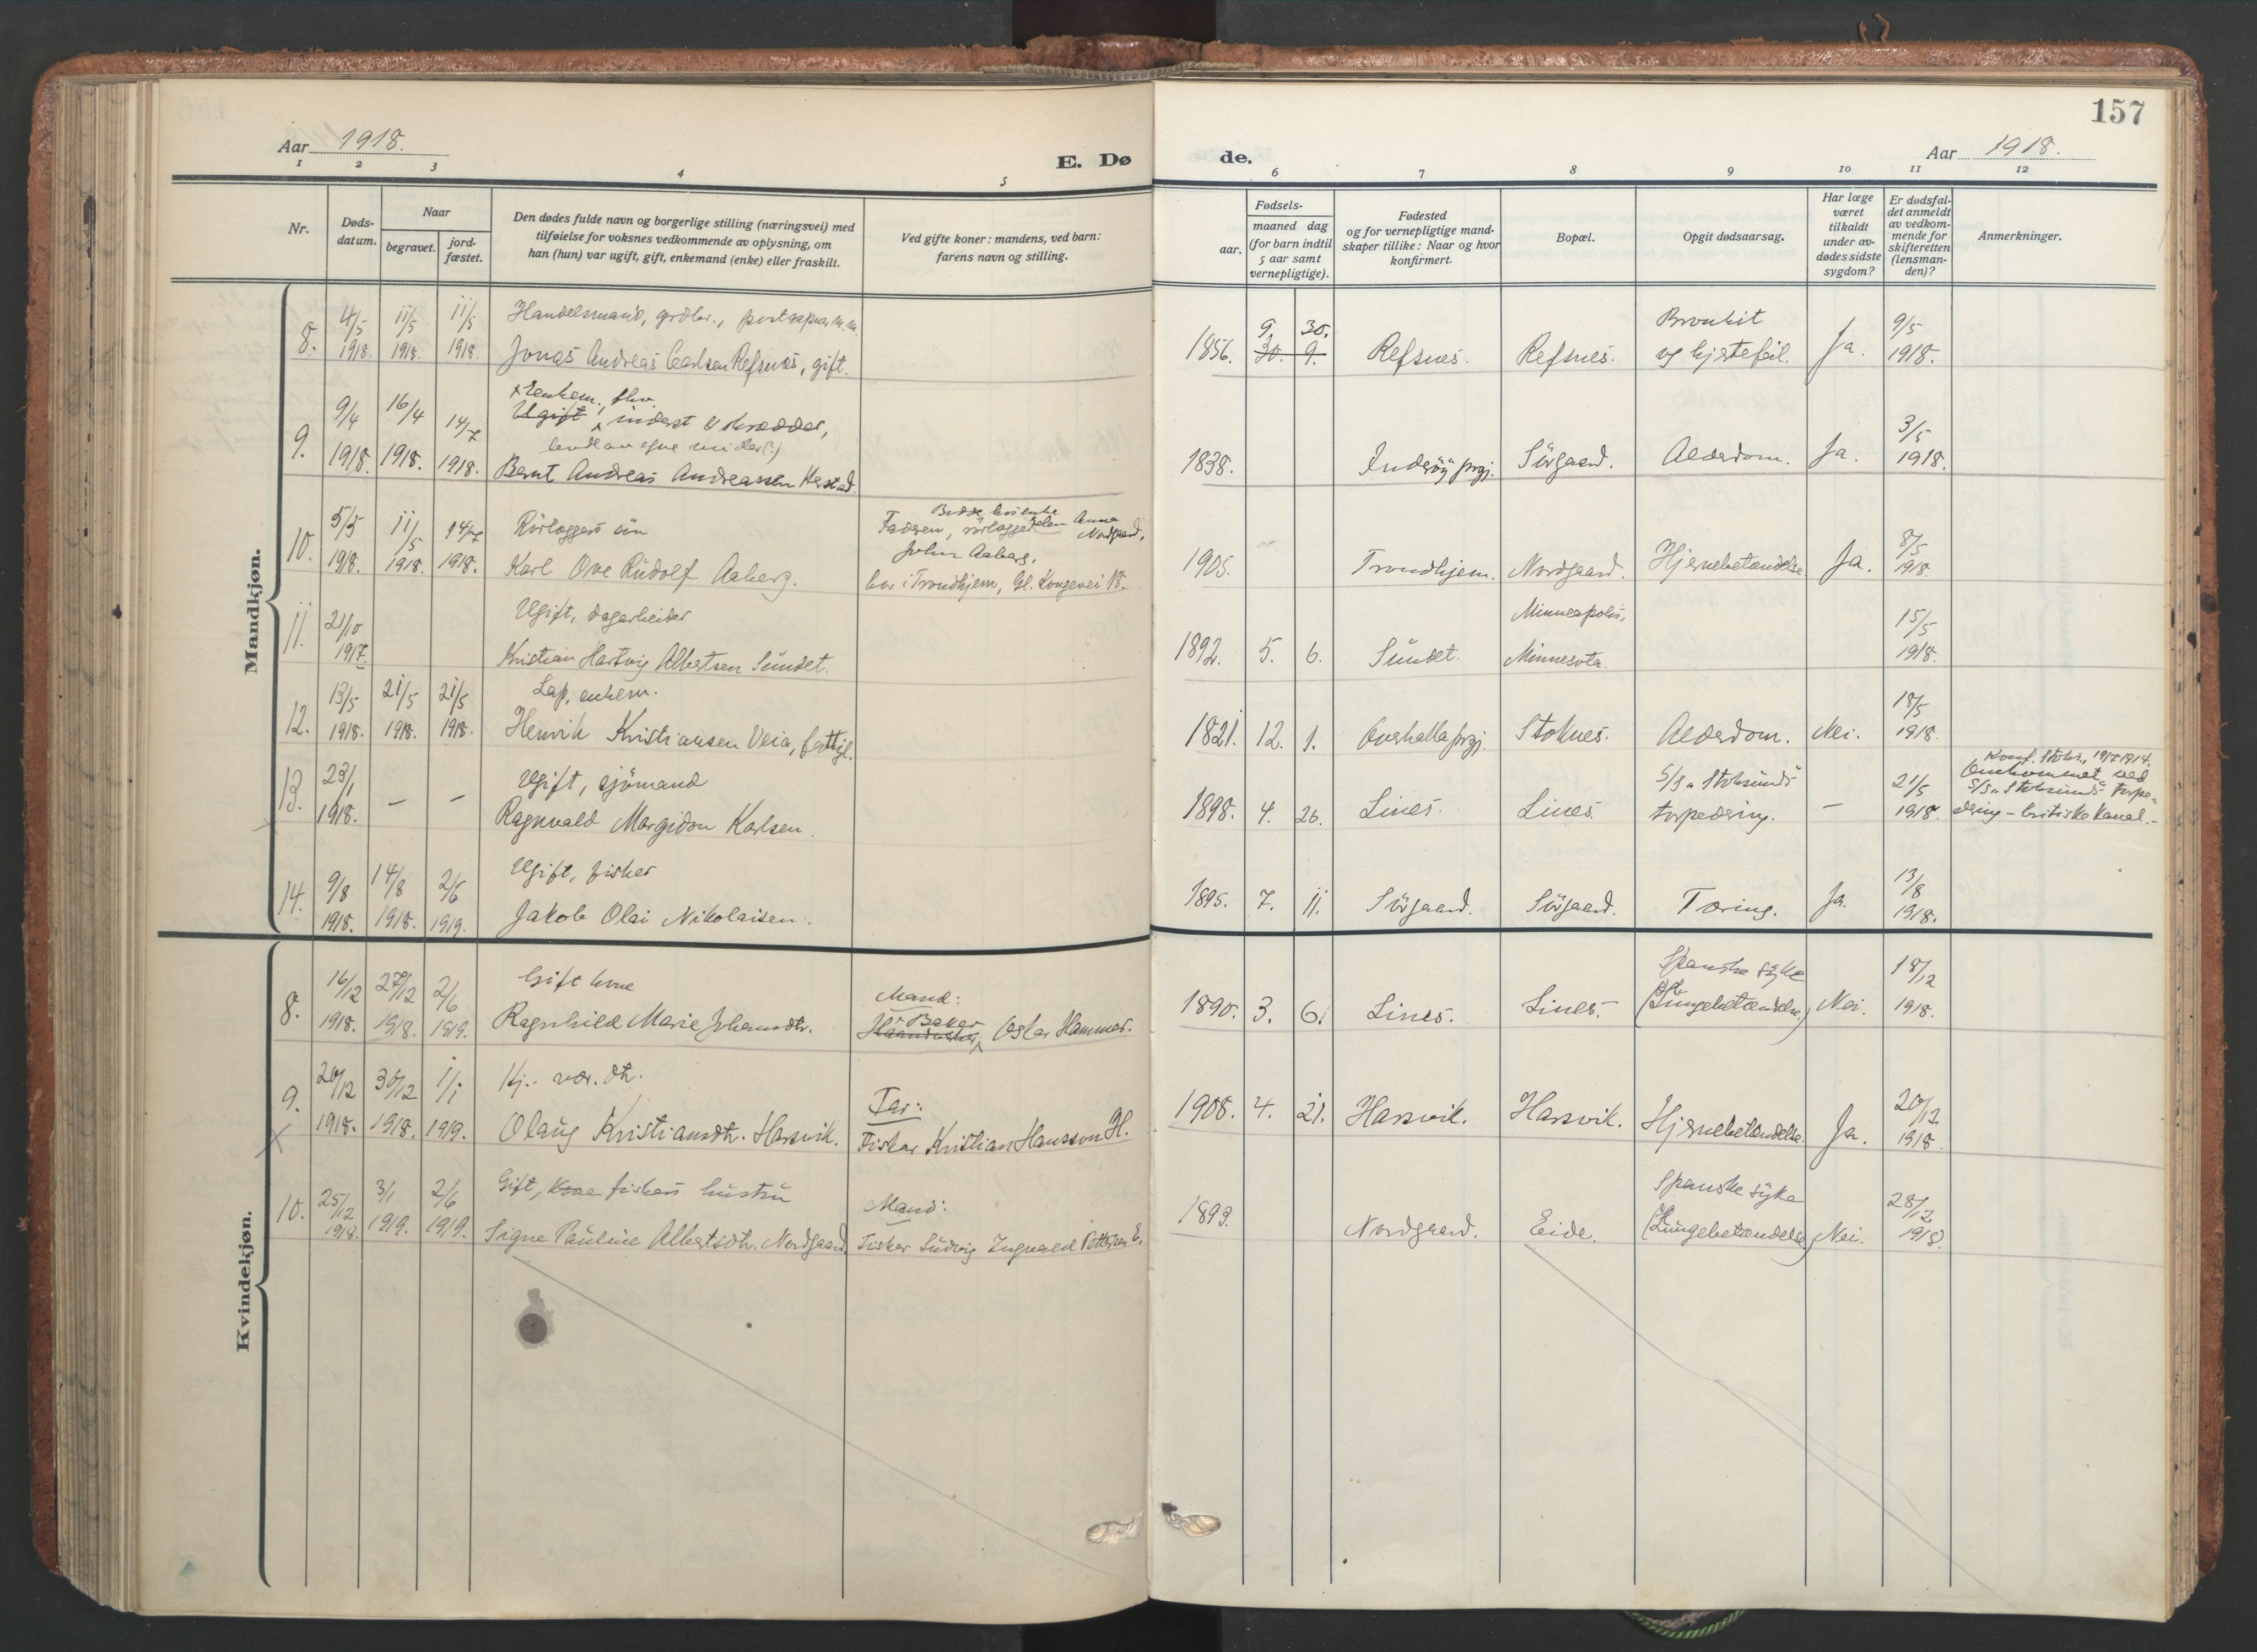 157
Aar 1918.
E. Dø
de.
Aar 1918.
1 2 3 4 5
6 7 8 9 10 11 12
Nr.
Døds-
datum.
Naar
begravet.
jord-
fæstet.
Den dødes fulde navn og borgerlige stilling (næringsvei) med
tilføielse for voksnes vedkommende av oplysning, om
han (hun) var ugift, gift, enkemand (enke) eller fraskilt.
Ved gifte koner: mandens, ved barn:
farens navn og stilling.
Fødsels-
aar.
maaned dag
(for barn indtil
5 aar samt
vernepligtige).
Fødested
og for vernepligtige mand-
skaper tillike: Naar og hvor
konfirmert.
Bopæl.
Opgit dødsaarsag.
Har læge
været
tilkaldt
under av-
dødes sidste
sygdom?
Er dødsfal-
det anmeldt
av vedkom-
mende for
skifteretten
(lensman-
den)?
Anmerkninger.
Mandkjøn.
8.
4/5 1918.
11/5 1918.
11/5 1918.
Handelsmand, grdbr., m.m.
Jonas Andreas Carlsen Refsnes, gift.
1856.
9. 30.
30. 9.
Refsnes.
Refsnes.
Bronkit
og hjertefeil.
Ja.
9/5
1918.
9.
9/4 1918.
16/4 1918.
14/7 1918.
Enkem.
Ugift, inderst & skrædder,
Bernt Andreas Andreassen
1838.
Inderöy prgj.
Sörgaard.
Alderdom.
Ja.
3/5
1918.
10.
5/5 1918.
11/5 1918.
14/7 1918.
Rörlæggers sön
Karl Ove Rudolf Aaberg.
Anna
Nordgaard,
John Aaberg,
bor i Trondhjem, Gl. Kongevei 18.
1905.
Trondhjem.
Nordgaard.
Hjernebetændelse
Ja.
8/5
1918.
11.
21/10 1917.
Ugift, dagarbeider
Kristian Hartvig Albertsen Sundet.
1892. 5. 6.
Sundet.
Minneapolis,
Minnesota.
15/5
1918.
12.
13/5 1918.
21/5 1918.
21/5 1918.
Lap, enkem.
Henrik Kristiansen Veia, fattigl.
1821. 12. 1.
Overhalla prgj.
Stoknes.
Alderdom.
Nei.
18/5
1918.
13.
23/1 1918.
—
—
Ugift, sjömand
Ragnvald Margidon Karlsen.
1898. 4. 26.
Lines.
Lines.
S/S „Stoksund"
torpedering.
—
21/5
1918.
Konf. Stoks., 1914.
Omkommet ved
S/S „Stoksund" torpe-
dering – britiske kanal.–
14.
9/8 1918.
14/8 1918.
2/6 1919.
Ugift, fisker
Jakob Olai Nikolaisen.
1895. 7. 11.
Sörgaard.
Sörgaard.
Tæring.
Ja.
13/8
1918.
Kvindekjøn.
8.
16/12 1918.
27/12 1918.
2/6 1919.
Gift kone
Ragnhild Marie Johansdtr.
Mand:
Baker
Oskar Hammer.
1890. 3. 6.
Lines.
Lines.
Spanske syke
(Lungebetændelse.)
Nei.
18/12
1918.
9.
20/12 1918.
30/12 1918.
1/1 1919.
Hj. vær. dtr.
Olaug Kristiansdtr. Harsvik.
Far:
Fisker Kristian Hansson H.
1908. 4. 21.
Harsvik.
Harsvik.
Hjernebetændelse.
Ja.
20/12
1918.
10.
25/12 1918.
3/1 1919.
2/6 1919.
Gift, kone fiskers hustru
Signe Pauline Albertsdtr. Nordgaard.
Mand:
Fisker Ludvig Ingvald Pettersen E.
1893.
Nordgaard.
Eide.
Spanske syke
(Lungebetændelse)
Nei.
28/12
1918.